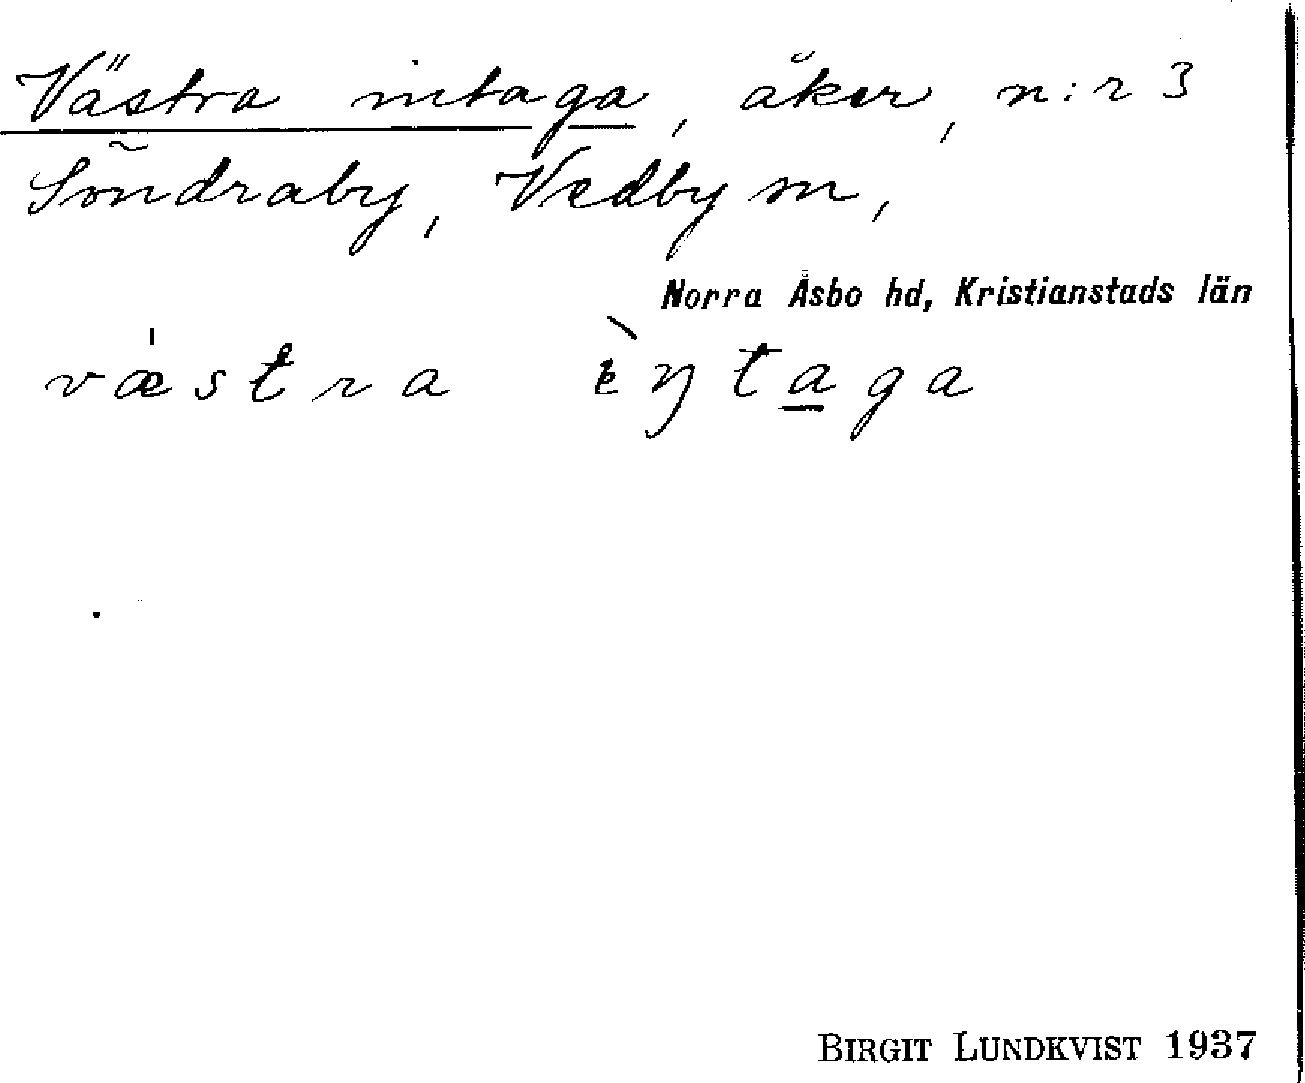 Västra intaga, åker, n:r 3
Söndraby, Vedby sn,
Norra Åsbo hd, Kristianstads län
væ̍stra ὲŋtaga
BIRGIT LUNDKVIST 1937